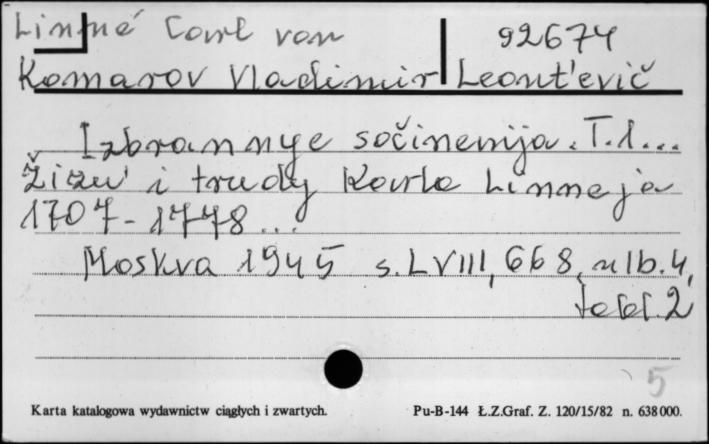 Linné Carl von 92674
Komarov Vladimir Leont'evič
Izbrannye sočinenija. T.1...
Žizn' i trudy Karla Linneja
1707-1778...
Moskva 1945 s. LVIII, 668, nlb. 4,
tabl. 2
5
Karta katalogowa wydawnictw ciągłych i zwartych. Pu-B-144 Ł.Z.Graf. Z. 120/15/82 n. 638 000.